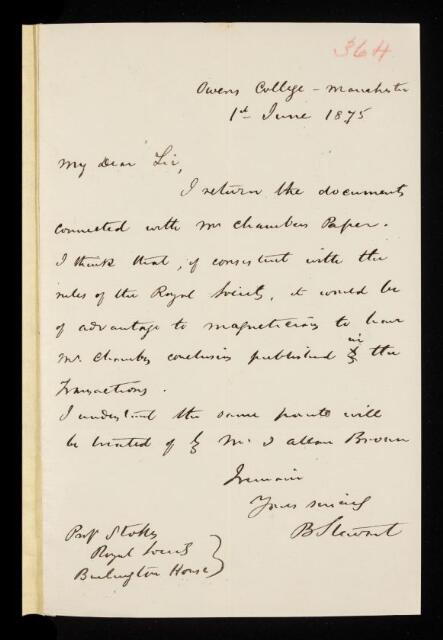 364
Owens College - Manchester
1st June 1875
My Dear Sir,
I return the documents
connected with Mr Chambers Paper.
I think that, if consistent with the
rules of the Royal Society, it would be
of advantage to magneticians to have
Mr Chambers conclusions published in the
Transactions.
I understand the same points will
be treated of by Mr J Allan Broun
I remain
Yours sincerely
B Stewart
Prof Stokes
Royal Society
Burlington House